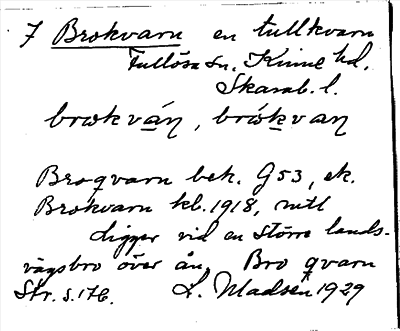 7 Brokvarn en tullkvarn
Fullösa sn. Kinne hd.
Skarab. l.
brωkván, brókvan
Broqvarn bek. G53, ek.
Brokvarn kb. 1918, mtl
ligger vid en större lands-
vägsbro över ån, Bro qvarn
Str. s. 176. L. Madsen 1929